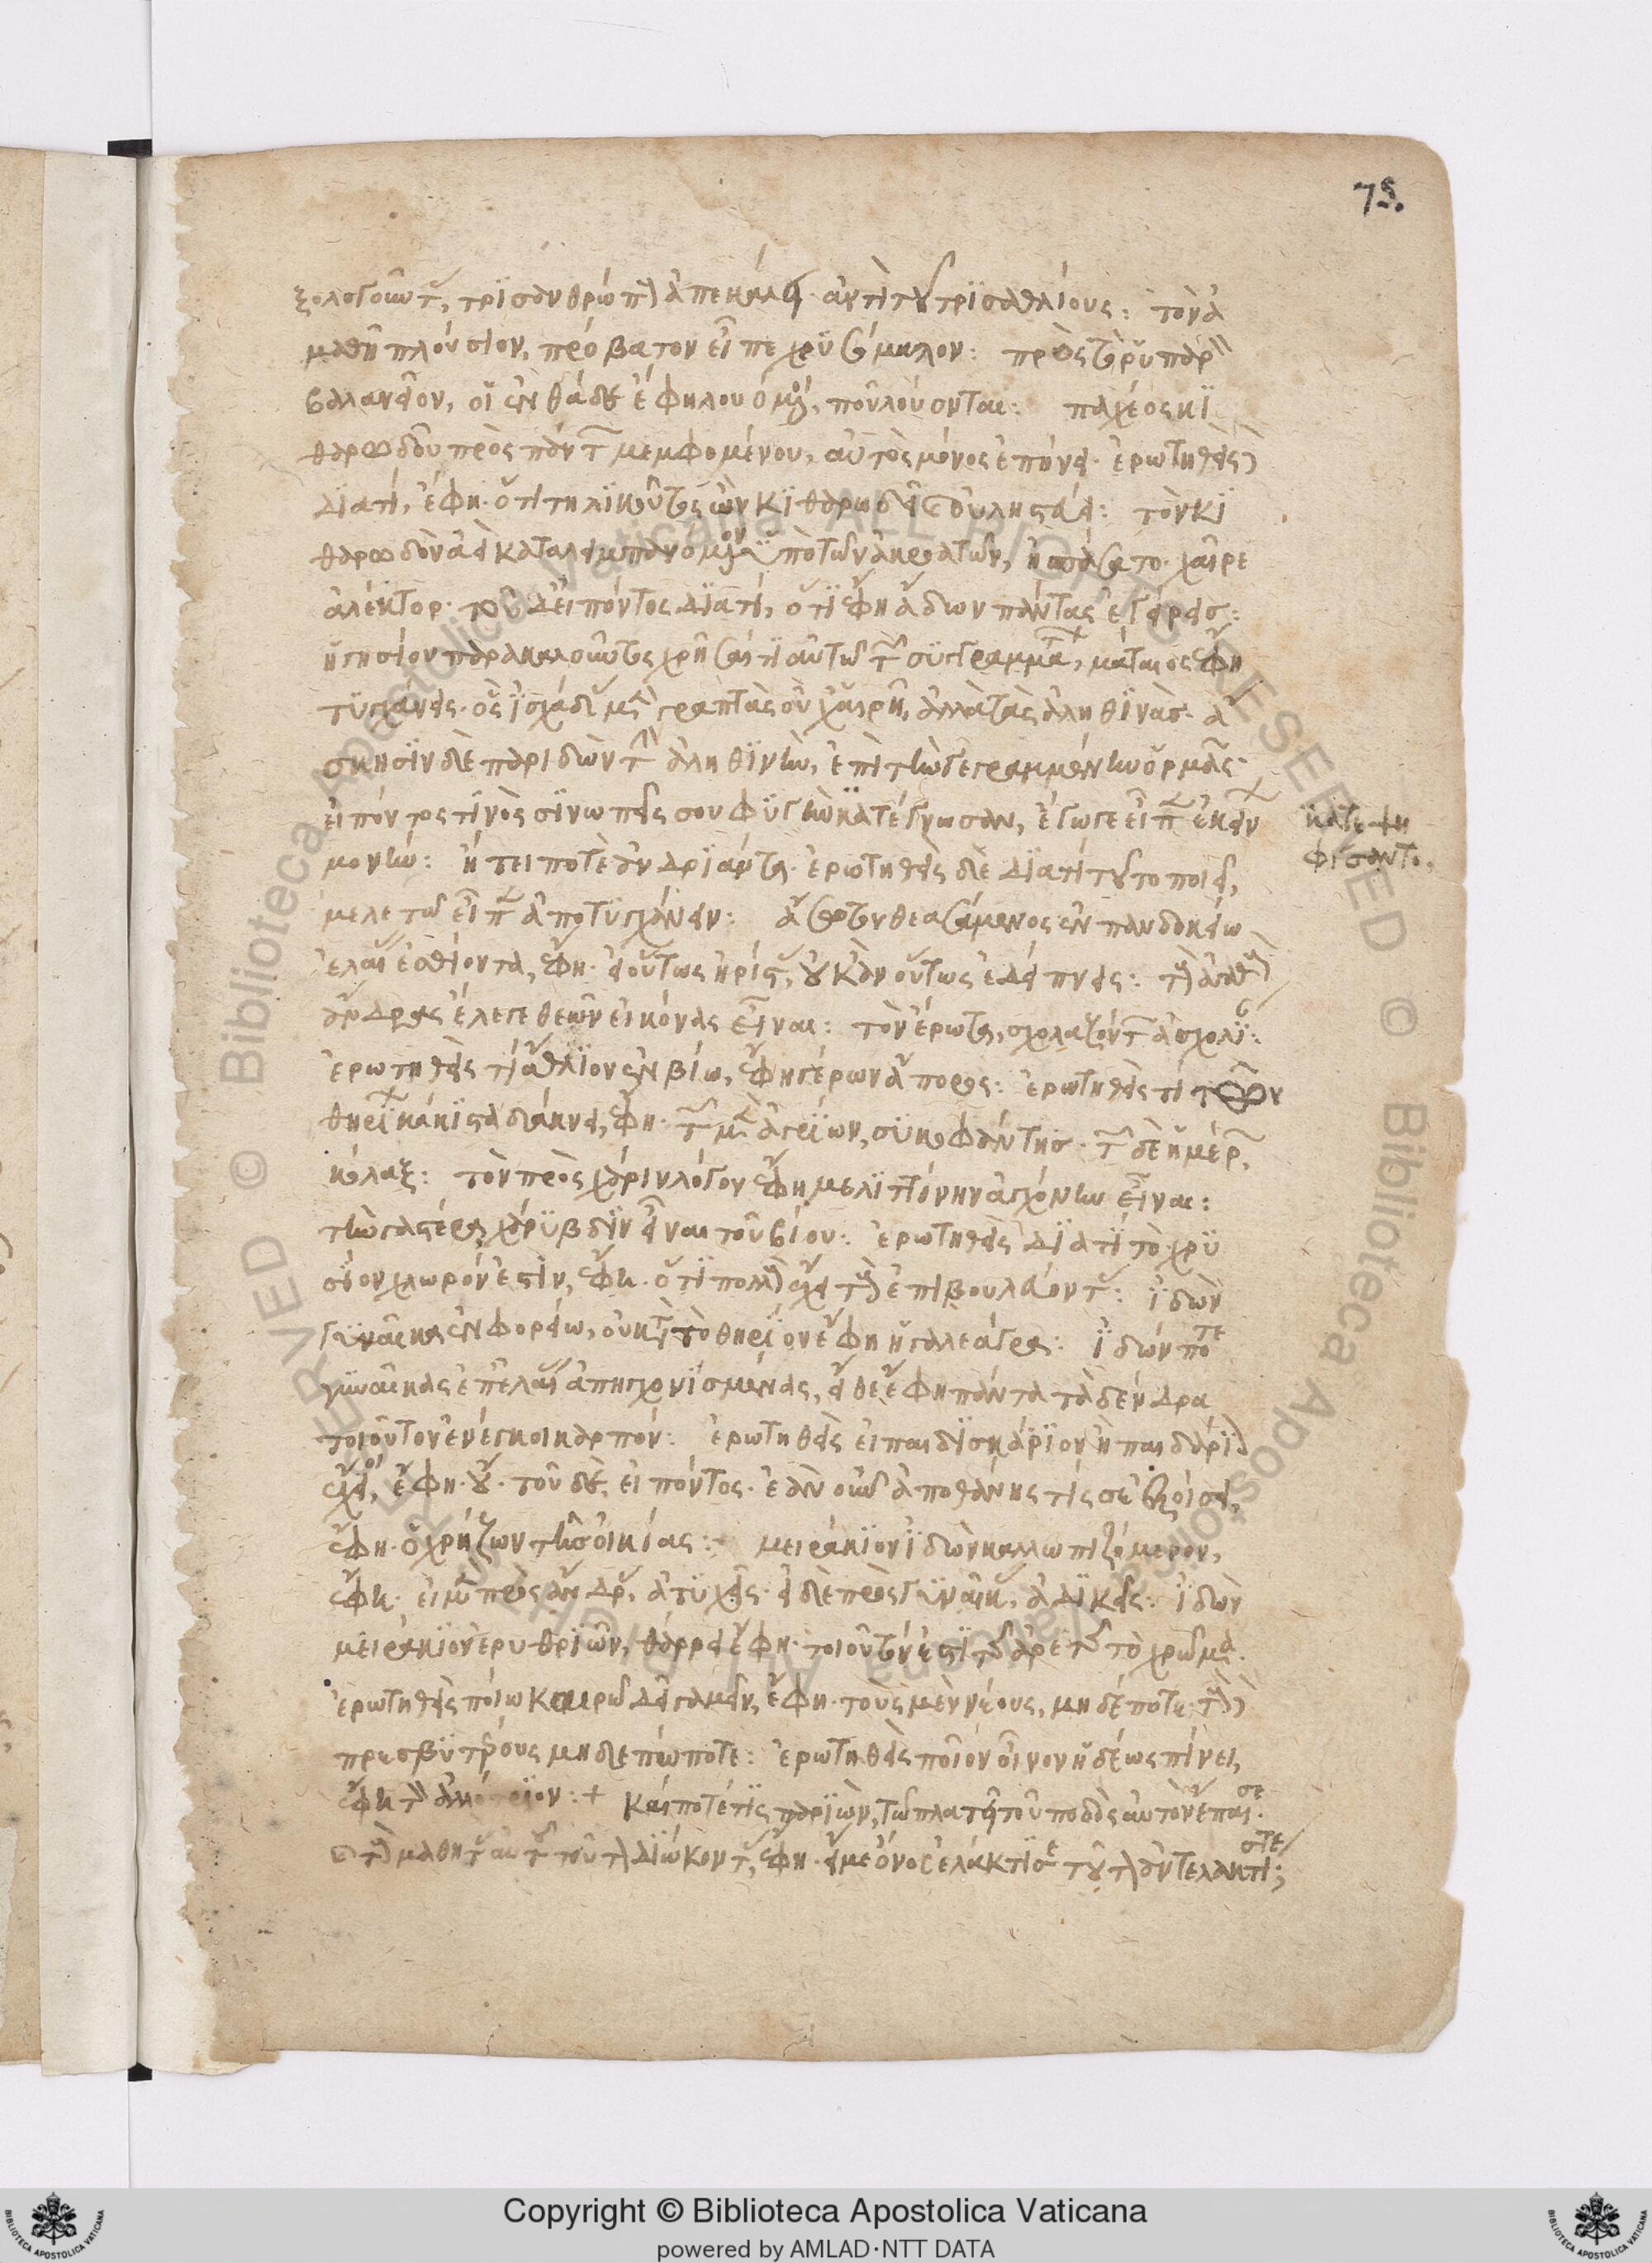 75.
ξολογοῦντ, τρισανθρώπ ἀπεκάλει ἀντὶ τοῦ τρισαθλίους: τὸν ἀ
μαθῆ πλούσιον, πρόβατον εἶπε χρυσόμαλλον: πρὸς τὸ ῥυπαρ
βαλανεῖον, οἱ ἐνθάδε ἔφη λουόμ, ποῦ λούονται: παχέος κι
θαρωδοῦ πρὸς πάντ μεμφομένου, αὐτὸς μόνος ἐπήνει· ἐρωτηθεὶς
διατί, ἔφη· ὅτι τηλικοῦτος ὢν κιθαρωδεῖ καὶ οὐ ληστεύει: τὸν κι
θαρωδὸν ἀεὶ καταλειμπανόμενον ὑπὸ τῶν ἀκροατῶν, ἠσπάσατο· χαῖρε
ἀλέκτορ· τοῦ δὲ εἰπόντος διατί, ὅτι ἔφη ἄδων πάντας ἐγείρεις:
ἡγησίου παρακαλοῦντος χρῆσαί τι αὐτῶ τ συγγραμμάτ, μάταιος ἔφη
τυγχάνεις· ὃς ἰσχάδ μ γραπτὰς οὐχ αἱρῆ, ἀλλὰ τὰς ἀληθινάς· ἄ
σκησιν δὲ παριδὼν τ ἀληθινὴν, ἐπὶ τὴν γεγραμμένην ὁρμᾶς·
εἰπόντος τινὸς σινωπεῖς σου φυγὴν κατέγνωσαν, ἔγωγε εἶπ ἐκείν
μονὴν: ἤτει ποτὲ ἀνδριάντα· ἐρωτηθεὶς δὲ διατί τοῦτο ποιεῖ,
μελετῶ εἶπ ἀποτυγχάνειν: ἄσωτον θεασάμενος ἐν πανδοκείω
ἐλαί ἐσθίοντα, ἔφη· εἰ οὕτως ἠρίστ, οὐκ ἂν οὕτως ἐδείπνεις: τ ἀγαθ
ἄνδρας ἔλεγε θεῶν εἰκόνας εἶναι: τὸν ἔρωτα, σχολαζόντ ἀσχολί:
ἐρωτηθεὶς τί ἄθλιον ἐν βίω, ἔφη γέρων ἄπορος: ἐρωτηθεὶς τί τῶν
θηρί κάκιστα δάκνει, ἔφη· τ μ ἀγρίων, συκοφάντης· τ δὲ ἡμέρ,
κόλαξ: τὸν πρὸς χάριν λόγον ἔφη μελιτίνην ἀγχόνην εἶναι:
τὴν γαστέρα χάρυβδιν εἶναι τοῦ βίου: ἐρωτηθεὶς διατί τὸ χρυ
σίον χλωρόν ἐστιν, ἔφη· ὅτι πολλ ἔχει τ ἐπιβουλεύοντ: ἰδὼν
γυναῖκα ἐν φορείω, οὐ κ τὸ θηρίον ἔφη ἡ γαλεάγρα: ἰδών ποτε
γυναῖκας ἐπ ἐλαί ἀπηγχονισμένας, εἴθε ἔφη πάντα τὰ δένδρα
τοιοῦτον ἐνέγκοι καρπόν: ἐρωτηθεὶς εἰ παιδισκάριον ἢ παιδάρι
ἔχοι, ἔφη· οὔ· τοῦ δὲ εἰπόντος· ἐὰν οὖν ἀποθάνης τίς σε ἐξοίσει,
ἔφη· ὁ χρήζων τῆς οἰκίας: μειράκιον ἰδὼν καλλωπιζόμενον,
ἔφη· εἰ μ πρὸς ἄνδρ, ἀτυχεῖς· εἰ δὲ πρὸς γυναῖκ, ἀδικεῖς: ἰδὼν
μειράκιον ἐρυθριῶν, θάρρει ἔφη· τοιοῦτόν ἐστι τῆς ἀρετῆς τὸ χρῶμα.
ἐρωτηθεὶς ποίω καιρῶ δεῖ γαμεῖν, ἔφη· τοὺς μὲν νέους, μηδέποτε· τ
πρεσβυτέρους μηδεπώποτε: ἐρωτηθεὶς ποῖον οἶνον ἡδέως πίνει,
ἔφη τ ἀλλότριον:+ Καί ποτέ τις παριών, τῶ πλατεῖ τοῦ ποδὸς αὐτὸν ἔπαισε.
τ μαθητ αὐτ τοῦτ διώκοντ, ἔφη· εἴ με ὄνος ἐλάκτισε τοῦτ ἀντελακτί;
κατεψη
φίσαντο.
Copyright © Biblioteca Apostolica Vaticana
powered by AMLAD·NTT DATA